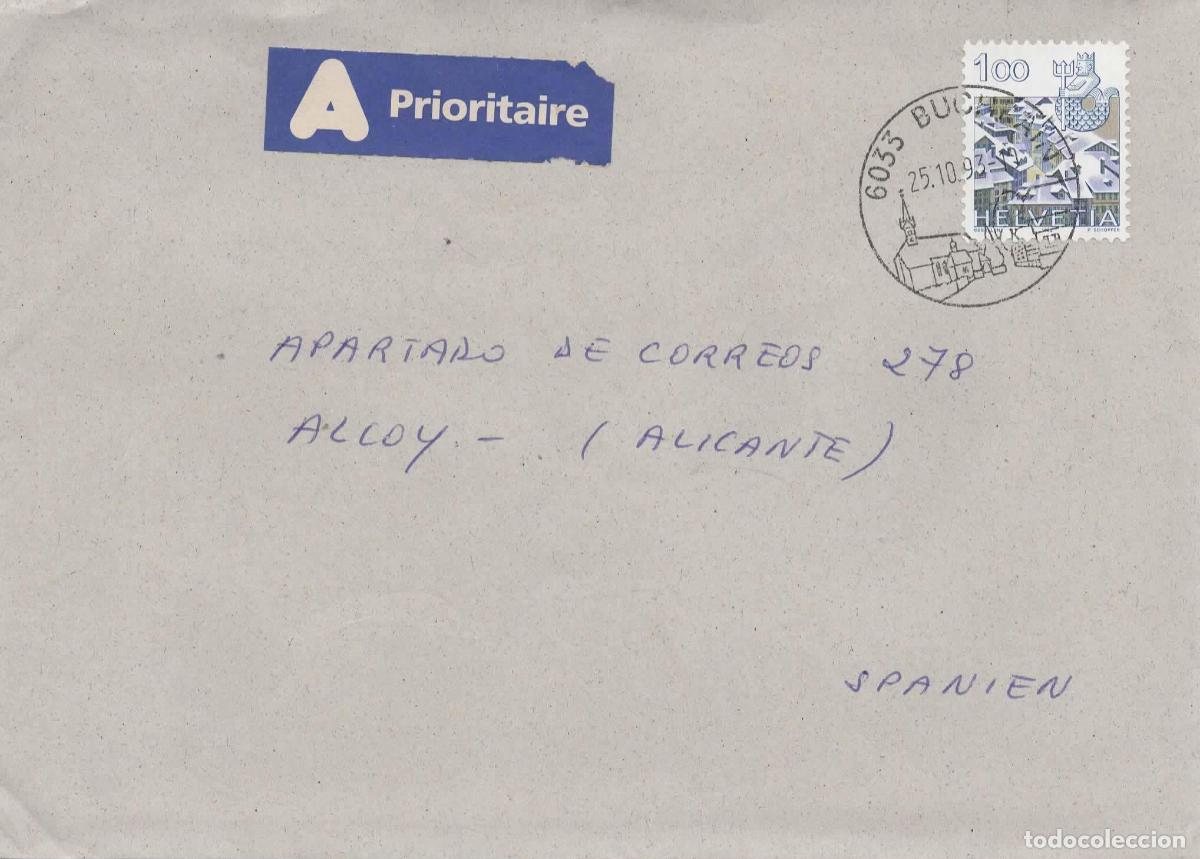 A Prioritaire
1.00
6033 BUCHRAIN
25.10.93-
HELVETIA
P. SCHOPFER
APARTADO DE CORREOS 278
ALCOY - (ALICANTE)
SPANIEN
todocoleccion